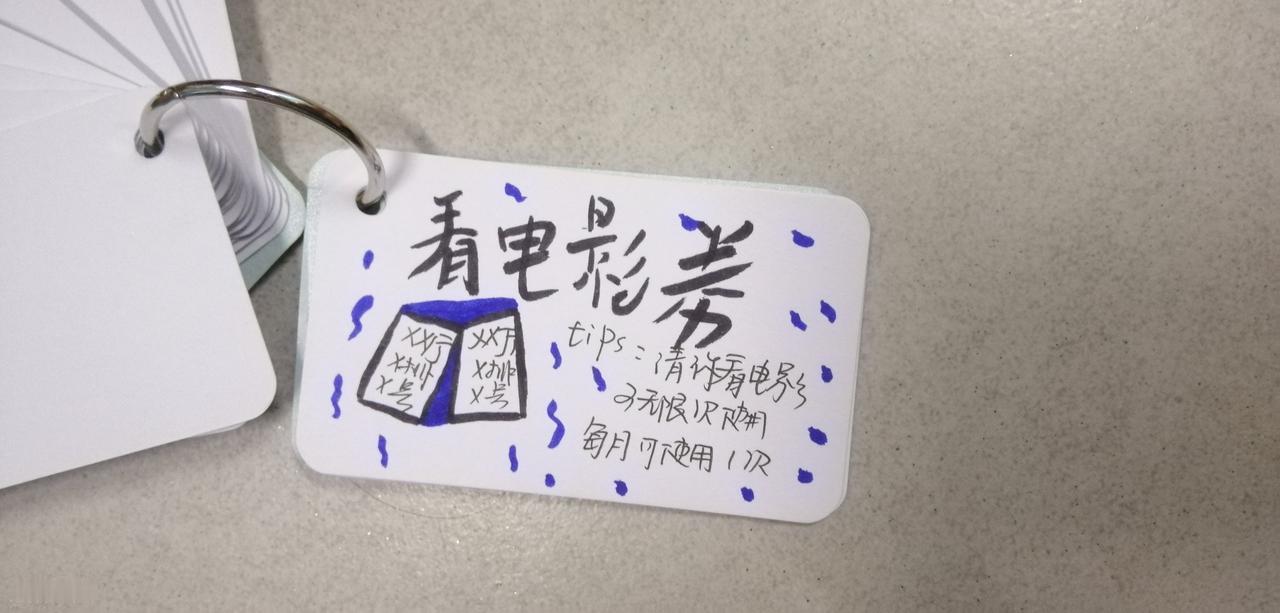 看电影券
XX厅
X排
X号
XX厅
X排
X号
tips：请你看电影
可无限次使用
每月可使用1次